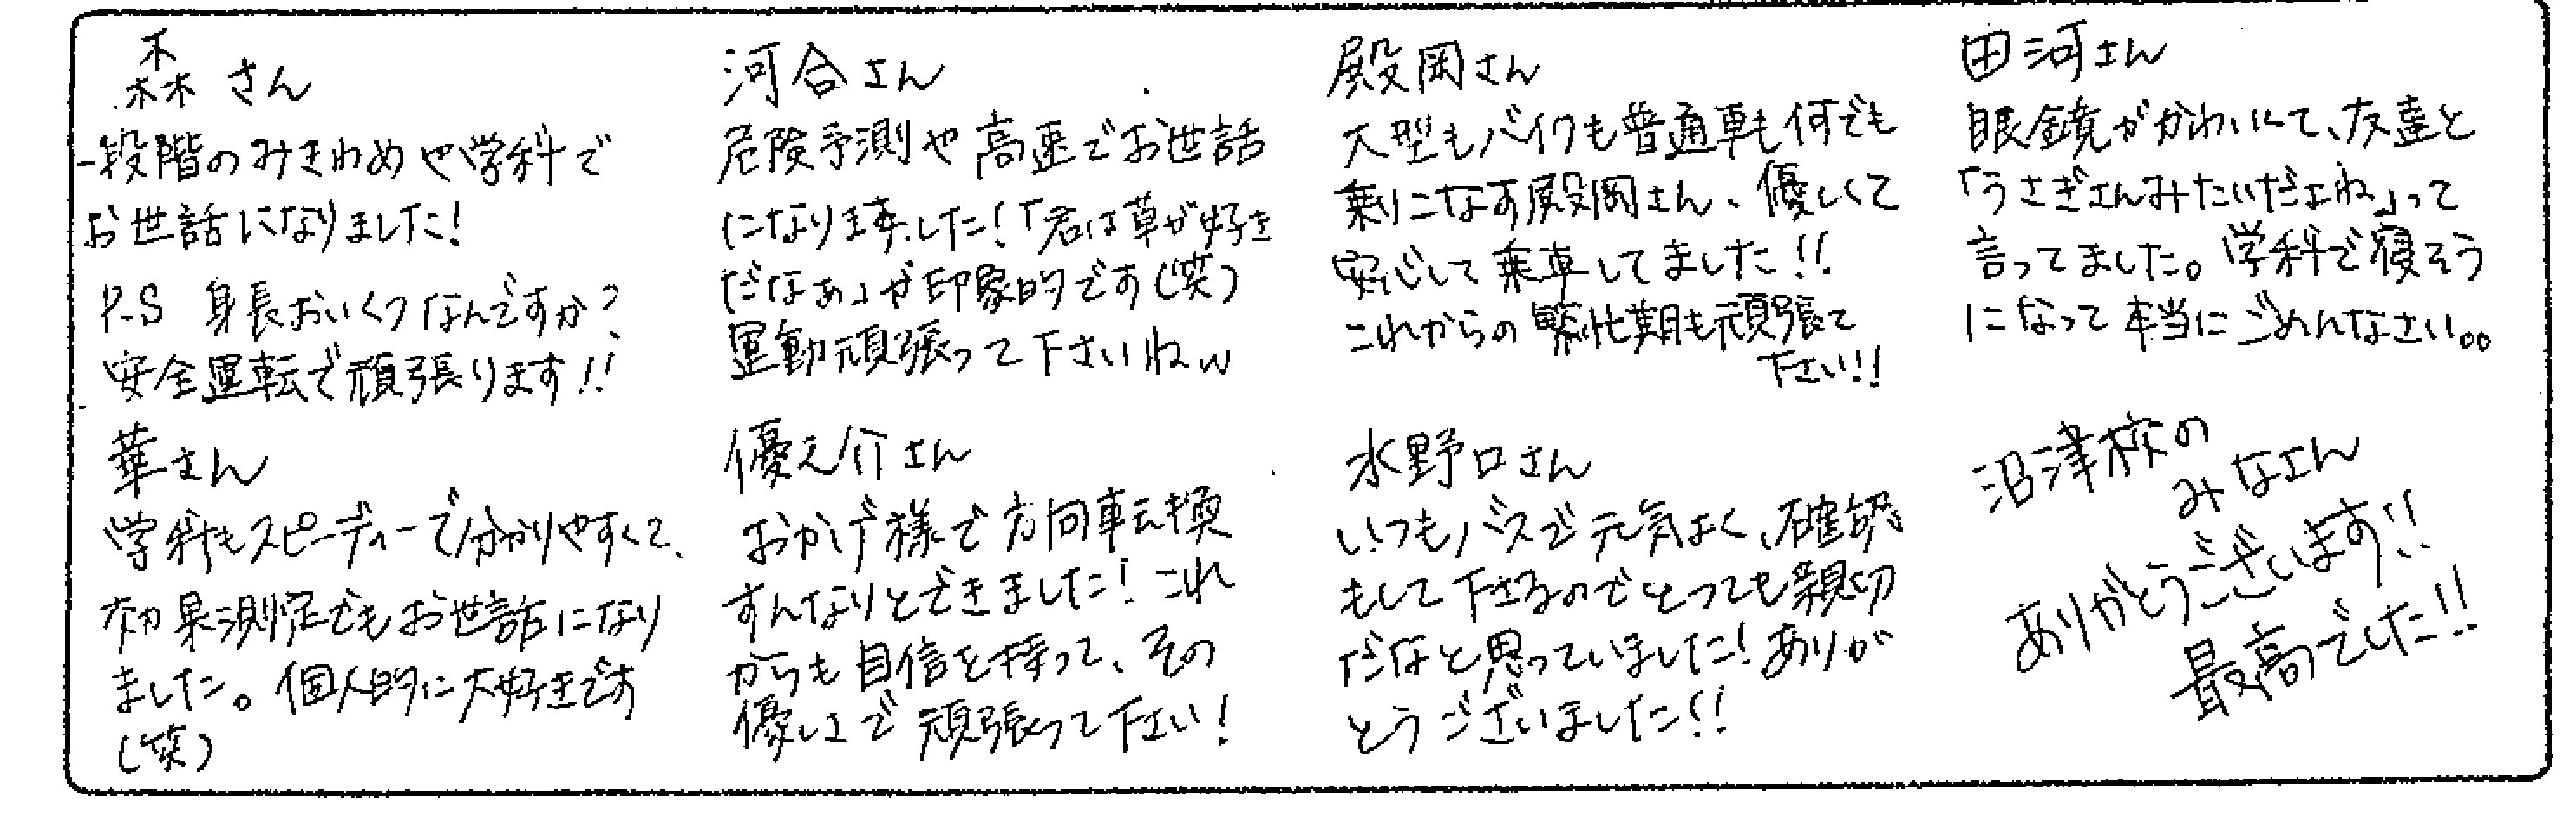 森さん
一段階のみきわめや学科で
お世話になりました!
P.S 身長おいくつなんですか?
安全運転で頑張ります!!
河合さん
危険予測や高速でお世話
になりました!「君は草が好き
だなぁ」が印象的です(笑)
運動頑張って下さいねw
殿岡さん
大型もバイクも普通車も何でも
乗りこなす殿岡さん、優しくて
安心して乗車してました!!
これからの繁忙期も頑張て
下さい!!
田河さん
眼鏡がかわいくて、友達と
「うさぎさんみたいだよね」って
言ってました。学科で寝そう
になって本当にごめんなさい。。
華さん
学科もスピーディーで分かりやすくて、
効果測定でもお世話になり
ました。個人的に大好きです
(笑)
優之介さん
おかげ様で方向転換
すんなりとできました!これ
からも自信を持って、その
優しさで頑張って下さい!
水野口さん
いつもバスで元気よく、確認
もして下さるのでとっても親切
だなと思っていました!ありが
とうございました!!
沼津校の
みなさん
ありがとうございます!!
最高でした!!